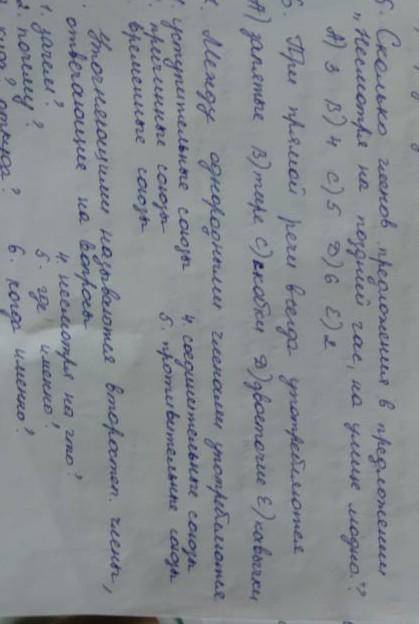 5. Сколько членов предложения в предложении
"Несмотря на поздний час, на улице людно."
А) 3 В) 4 С) 5 Д) 6 Е) 2
6. При прямой речи всегда употребляются
А) запятые В) тире С) скобки Д) двоеточие Е) кавычки
Между однородными членами употребляются
уступительные союзы 4. соединительные союзы
причинные союзы 5. противительные союзы
временные союзы
Уточняющими называются второстеп. члены,
отвечающие на вопросы
1. зачем? 4. несмотря на что?
2. почему? 5. где именно?
куда? откуда? 6. когда именно?